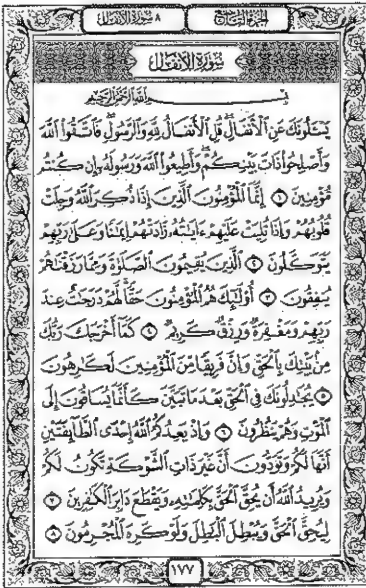 الجزء التاسع
٨ سورة الأنفال
سُورَةُ الأَنفَالِ
بِسْمِ اللَّهِ الرَّحْمَٰنِ الرَّحِيمِ
يَسْـَٔلُونَكَ عَنِ ٱلْأَنفَالِ ۖ قُلِ ٱلْأَنفَالُ لِلَّهِ وَٱلرَّسُولِ ۖ فَٱتَّقُوا۟ ٱللَّهَ
وَأَصْلِحُوا۟ ذَاتَ بَيْنِكُمْ ۖ وَأَطِيعُوا۟ ٱللَّهَ وَرَسُولَهُۥٓ إِن كُنتُم
مُّؤْمِنِينَ ١ إِنَّمَا ٱلْمُؤْمِنُونَ ٱلَّذِينَ إِذَا ذُكِرَ ٱللَّهُ وَجِلَتْ
قُلُوبُهُمْ وَإِذَا تُلِيَتْ عَلَيْهِمْ ءَايَٰتُهُۥ زَادَتْهُمْ إِيمَٰنًا وَعَلَىٰ رَبِّهِمْ
يَتَوَكَّلُونَ ٢ ٱلَّذِينَ يُقِيمُونَ ٱلصَّلَوٰةَ وَمِمَّا رَزَقْنَٰهُمْ
يُنفِقُونَ ٣ أُو۟لَٰٓئِكَ هُمُ ٱلْمُؤْمِنُونَ حَقًّا ۚ لَّهُمْ دَرَجَٰتٌ عِندَ
رَبِّهِمْ وَمَغْفِرَةٌ وَرِزْقٌ كَرِيمٌ ٤ كَمَآ أَخْرَجَكَ رَبُّكَ
مِنۢ بَيْتِكَ بِٱلْحَقِّ وَإِنَّ فَرِيقًا مِّنَ ٱلْمُؤْمِنِينَ لَكَٰرِهُونَ
٥ يُجَٰدِلُونَكَ فِى ٱلْحَقِّ بَعْدَ مَا تَبَيَّنَ كَأَنَّمَا يُسَاقُونَ إِلَى
ٱلْمَوْتِ وَهُمْ يَنظُرُونَ ٦ وَإِذْ يَعِدُكُمُ ٱللَّهُ إِحْدَى ٱلطَّآئِفَتَيْنِ
أَنَّهَا لَكُمْ وَتَوَدُّونَ أَنَّ غَيْرَ ذَاتِ ٱلشَّوْكَةِ تَكُونُ لَكُمْ
وَيُرِيدُ ٱللَّهُ أَن يُحِقَّ ٱلْحَقَّ بِكَلِمَٰتِهِۦ وَيَقْطَعَ دَابِرَ ٱلْكَٰفِرِينَ ٧
لِيُحِقَّ ٱلْحَقَّ وَيُبْطِلَ ٱلْبَٰطِلَ وَلَوْ كَرِهَ ٱلْمُجْرِمُونَ ٨
١٧٧